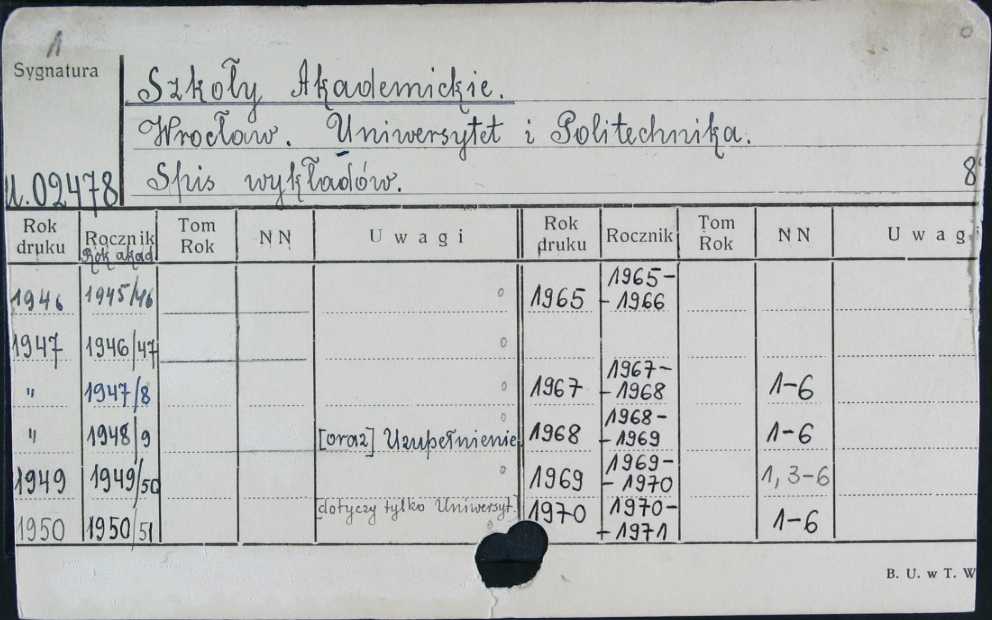 1
Sygnatura
Szkoły Akademickie.
Wrocław. Uniwersytet i Politechnika.
U.02478 Spis wykładów. 8°
Rok druku Rocznik Rok akad Tom Rok NN Uwagi Rok druku Rocznik Tom Rok NN Uwagi
1946 1945/46 1965 1965-1966
1947 1946/47
" 1947/8 1967 1967-1968 1-6
" 1948/9 [oraz] Uzupełnienie 1968 1968-1969 1-6
1949 1949/50 1969 1969-1970 1, 3-6
1950 1950/51 [dotyczy tylko Uniwersyt.] 1970 1970-1971 1-6
B. U. w T. W